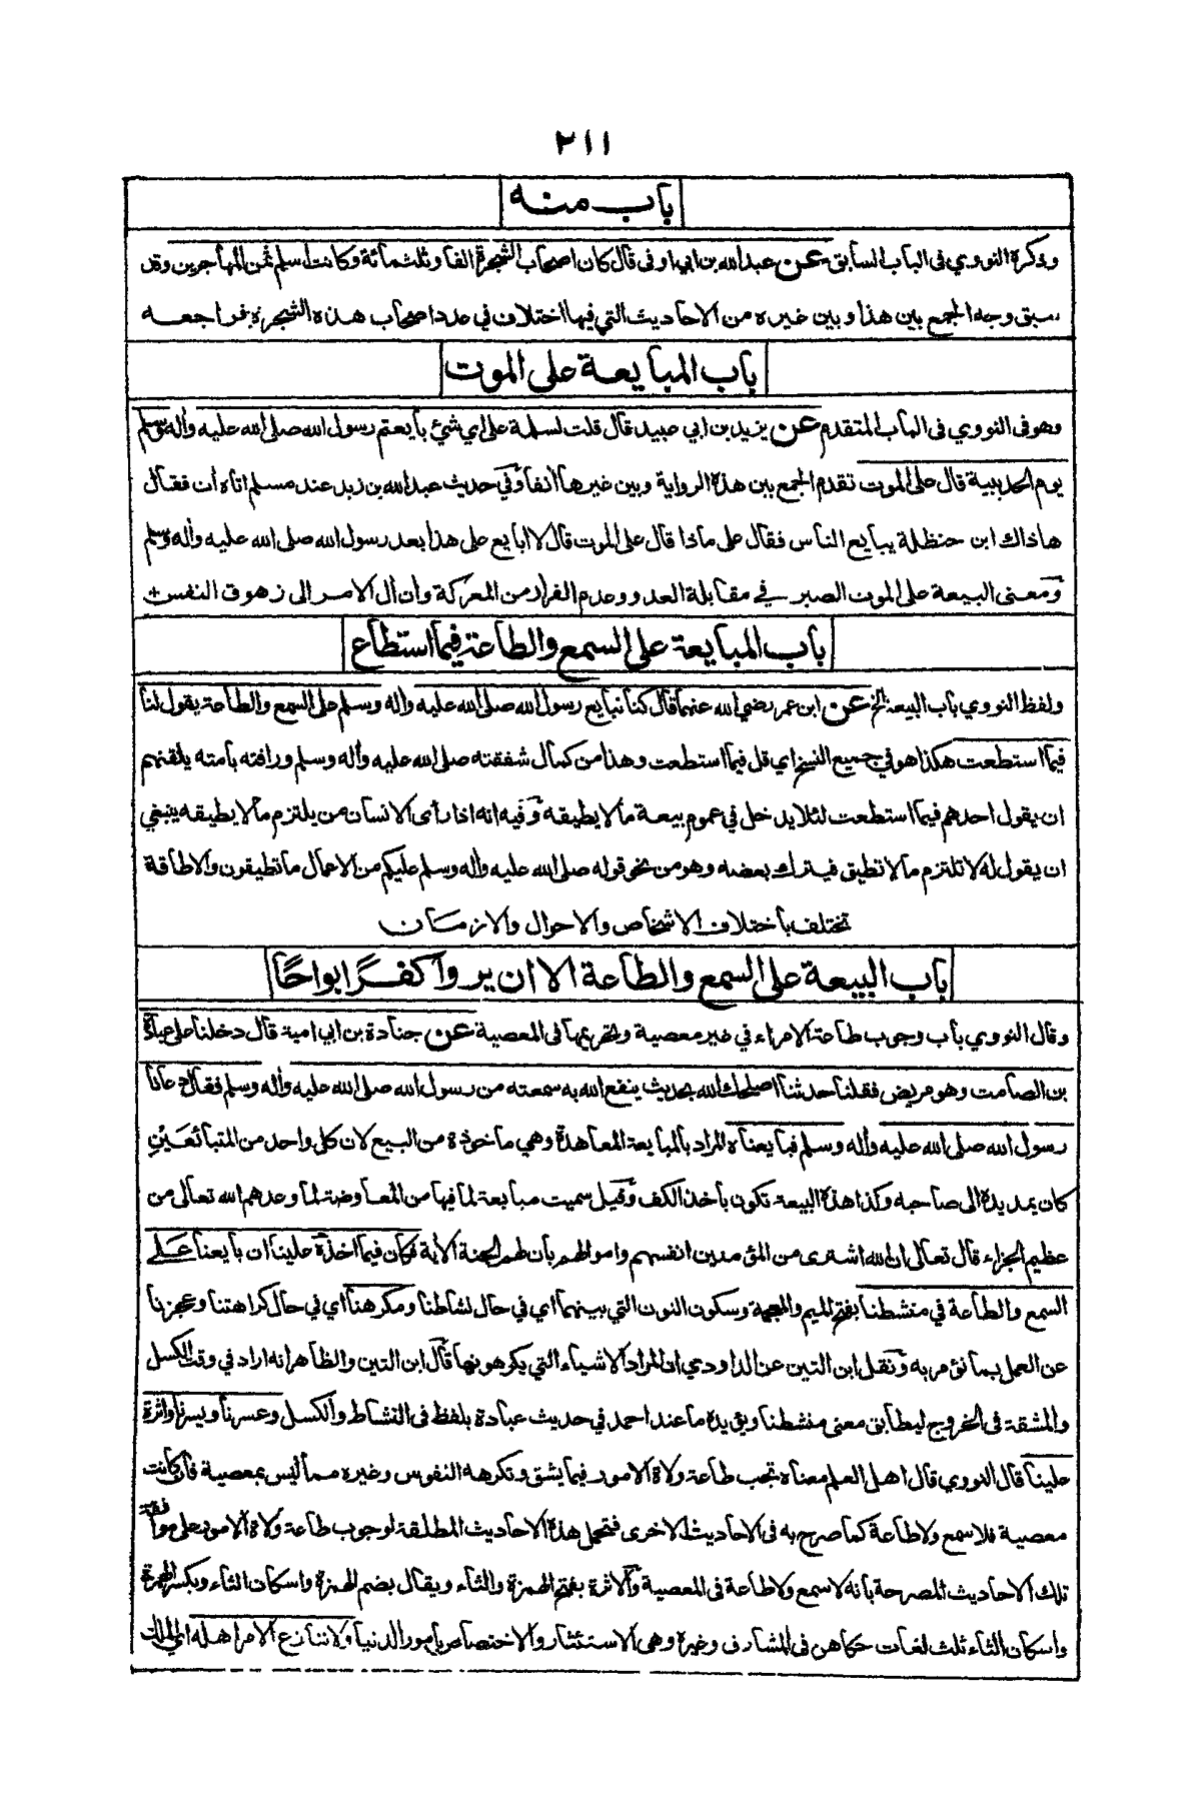 ٢١١
باب منه
وذكره النووي فى الباب السابق عن عبدالله بن ابي اوفى قال كان اصحاب الشجرة الفا وثلث مائة وكانت اسلم ثمن المهاجرين وقد
سبق وجه الجمع بين هذا وبين غيره من الاحاديث التي فيها اختلاف في عدد اصحاب هذه الشجرة فراجعه
باب المبايعة على الموت
وهو فى النووي فى الباب المتقدم عن يزيد بن ابي عبيد قال قلت لسلمة على اي شئ بايعتم رسول الله صلى الله عليه وأله وسلم
يوم الحديبية قال على الموت تقدم الجمع بين هذه الرواية وبين غيرها أنفا وفي حديث عبدالله بن زيد عند مسلم اتاه أت فقال
هاذاك ابن حنظلة يبايع الناس فقال على ماذا قال على الموت قال لا ابايع على هذا بعد رسول الله صلى الله عليه وأله وسلم
ومعنى البيعة على الموت الصبر في مقابلة العدو وعدم الفرار من المعركة وان أل الامر الى زهوق النفس +
باب المبايعة على السمع والطاعة فيما استطاع
ولفظ النووي باب البيعة الخ عن ابن عمر رضي الله عنهما قال كنا نبايع رسول الله صلى الله عليه وأله وسلم على السمع والطاعة يقول لنا
فيما استطعت هكذا هو في جميع النسخ اي قل فيما استطعت وهذا من كمال شفقته صلى الله عليه وأله وسلم ورافته بامته يلقنهم
ان يقول احدهم فيما استطعت لئلا يدخل في عموم بيعة ما لا يطيقه وفيه انه اذا رأى الانسان من يلتزم ما لا يطيقه ينبغي
ان يقول له لا تلتزم ما لا تطيق فيترك بعضه وهو من نحو قوله صلى الله عليه وأله وسلم عليكم من الاعمال ما تطيقون والاطاقة
تختلف باختلاف الاشخاص والاحوال والازمان
باب البيعة على السمع والطاعة الا ان يروا كفرًا بواحًا
وقال النووي باب وجوب طاعة الامراء في غير معصية وتحريمها فى المعصية عن جنادة بن ابي امية قال دخلنا على عبادة
بن الصامت وهو مريض فقلنا حدثنا اصلحك الله بحديث ينفع الله به سمعته من رسول الله صلى الله عليه وأله وسلم فقال دعانا
رسول الله صلى الله عليه وأله وسلم فبايعناه المراد بالمبايعة المعاهدة وهي ماخوذة من البيع لان كل واحد من المتبائعين
كان يمد يده الى صاحبه وكذا هذه البيعة تكون باخذ الكف وقيل سميت مبايعة لما فيها من المعاوضة لما وعدهم الله تعالى من
عظيم الجزاء قال تعالى ان الله اشترى من المؤمنين انفسهم واموالهم بان لهم الجنة الأية فكان فيما اخذ علينا ان بايعنا على
السمع والطاعة في منشطنا بفتح الميم والمعجمة وسكون النون التي بينهما اي في حال نشاطنا ومكرهنا اي في حال كراهتنا وعجزنا
عن العمل بما نؤمر به ونقل ابن التين عن الداودي ان المراد الاشياء التي يكرهونها قال ابن التين والظاهر انه اراد في وقت الكسل
والمشقة فى الخروج ليطابق معنى منشطنا ويؤيده ما عند احمد في حديث عبادة بلفظ فى النشاط والكسل وعسرنا ويسرنا واثرة
علينا قال النووي قال اهل العلم معناه تجب طاعة ولاة الامور فيما يشق وتكرهه النفوس وغيره مما ليس بمعصية فان كانت
معصية فلا سمع ولا طاعة كما صرح به فى الاحاديث الاخرى فتحمل هذه الاحاديث المطلقة لوجوب طاعة ولاة الامور على موافقة
تلك الاحاديث المصرحة بانه لا سمع ولا طاعة فى المعصية والاثرة بفتح الهمزة والثاء ويقال بضم الهمزة واسكان الثاء وبكسر الهمزة
واسكان الثاء ثلث لغات حكاهن فى المشارق وغيره وهى الاستئثار والاختصاص بامور الدنيا ولا ننازع الامر اهله اي الملك